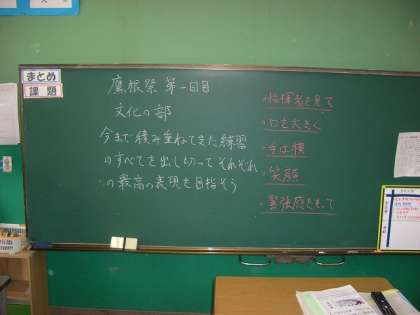 まとめ
課題
鷹根祭 第一日目
文化の部
今まで積み重ねてきた練習
のすべてを出し切って それぞれ
の最高の表現を目指そう
・指揮者を見て
・口を大きく
・手は横
・笑顔
・緊張感をもって